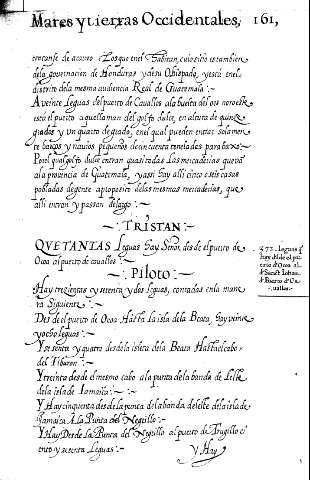 Mares y tierras Occidentales, 161,
trocanse de acoseo Los que en el habitan, cuio sitio es tambien
de la governacion de Honduras y de su Obispado, y está en el
distrito de la mesma audiencia Real de Guatemala :~
A veinte leguas del puerto de Cavallos a la buelta del oes noroeste
está el puerto a que llaman del golfo dulce, en altura de quinze
grados y un quarto de grado, en el qual pueden entrar solamen
te barcos y navios pequeños de cincuenta toneladas para baxo:~
Por el qual golfo dulce entran quasi todas Las mercaderias que vā
a la provincia de Guatemala, y assi hay alli cinco o seis casas
pobladas de gente a proposito de las mesmas mercaderias, que
alli entran y passan de largo :~
TRISTAN:~
QVE TANTAS leguas hay Señor, desde el puerto de
Ocoa al puerto de cavallos :~
PILOTO:~
Hay trezientas y setenta y dos leguas, contadas en la mane
ra Siguiente :~
Desde el puerto de Ocoa Hasta la isla de la Beata, hay veinte
y ocho leguas :~
Y sesenta y quatro desde la isleta de la Beata Hasta el cabo
del Tiburon :~
Y treinta desde el mesmo cabo a la punta de la banda de Leste
de la isla de Iamaica :~
Y Hay cinquenta desde la punta de la banda del este de la isla de
Jamaica A La Punta del Negrillo :~
Y Hay Desde La Punta del Negrillo al puerto de Trugillo ci
ento y setenta Leguas :~
Y Hay
372. leguas q̄
hay desde el pu
erto d'Ocoa al